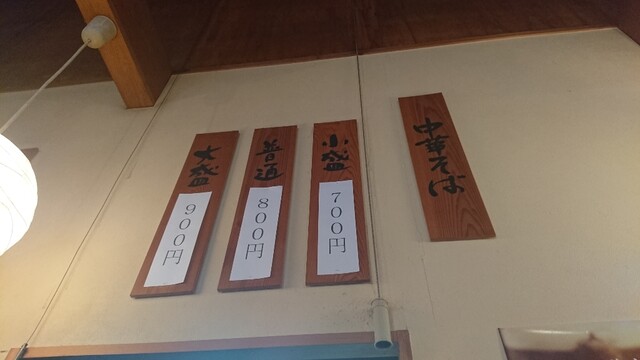 中華そば
小盛
７００円
普通
８００円
大盛
９００円